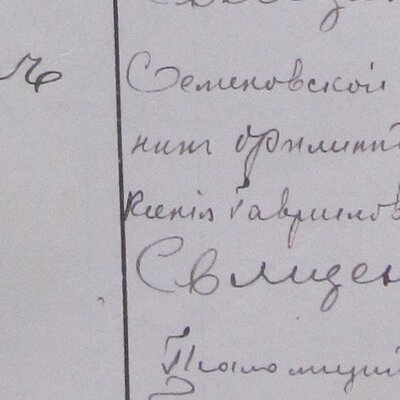 Семеновской
нинг Филипп
Ксенія Гаврилов
Священ
Псаломщик